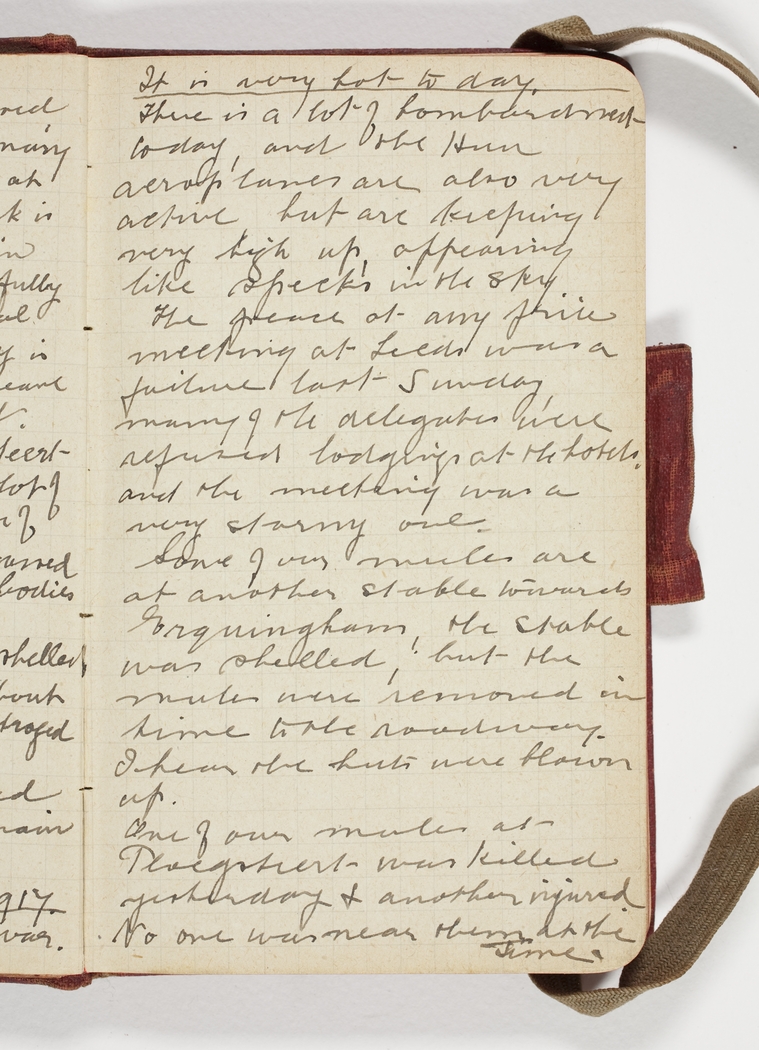 red
many
at
k is
in
fully
al
y is
eave
leert-
lot of
e of
bodies
shelled,
bout
troyed
ed
main
917.
war.
It is very hot to day.
There is a lot of bombardment
today, and the Hun
aeroplanes are also very
active but are keeping
very high up, appearing
like specks in the sky
The peace at any price
meeting at Leeds was a
failure last Sunday,
many of the delegates were
refused lodgings at the hotels,
and the meeting was a
very stormy one.
Some of our mules are
at another stable towards
Erquingham, the stable
was shelled, but the
mules were removed in
time to the roadway.
I hear the huts were blown
up.
One of our mules at
Ploegsteert was killed
yesterday & another injured
No one was near them at the
time.